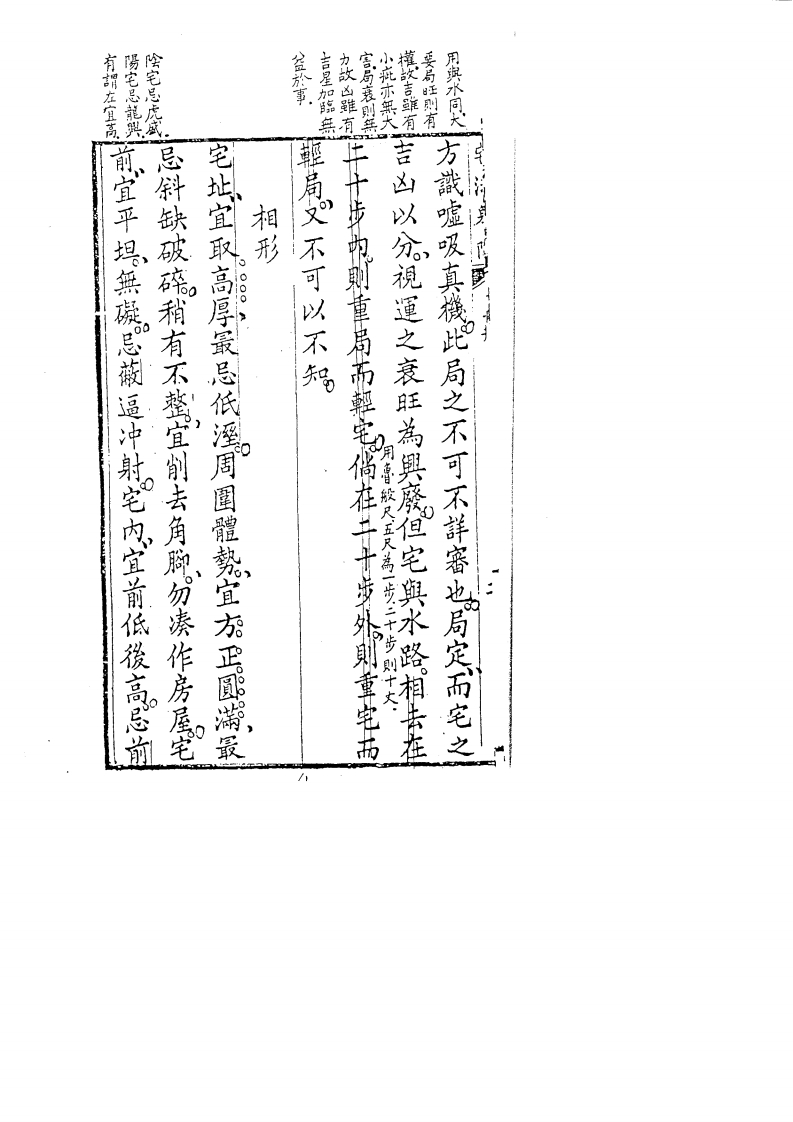 用與水同大
要局旺則有
權故吉雖有
小疵亦無大
害局衰則無
力故凶雖有
吉星加臨無
益於事。
陰宅忌虎威。
陽宅忌龍興。
有謂左宜高。
方識噓吸真機。此局之不可不詳審也。局定、而宅之
吉凶以分、視運之衰旺為興廢。但宅與水路。相去在
二十步內。則重局而輕宅。用魯般尺五尺為一步二十步則十丈。倘在二十步外、則重宅而
輕局、又不可以不知。
相形
宅址、宜取高厚、最忌低溼。周圍體勢、宜方正圓滿、最
忌斜缺破碎。稍有不整、宜削去角腳、勿湊作房屋。宅
前、宜平坦、無礙。忌蔽逼冲射。宅內、宜前低後高。忌前